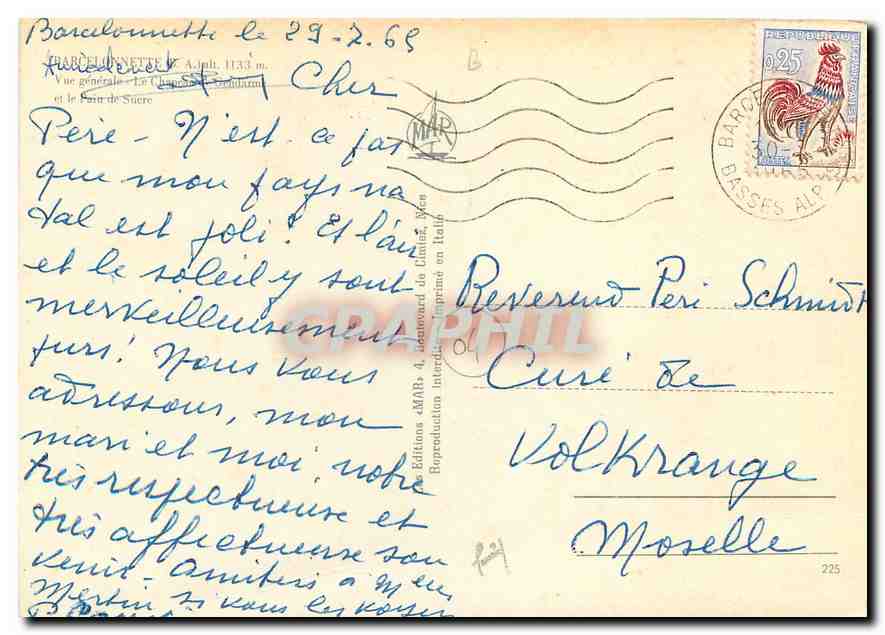 Barcelonnette le 29-7.65
BARCELONNETTE Alt. 1133 m.
Vue générale - Le Chapeau de Gendarme
et le Pain de Sucre
Cher
Père - N'est ce pas
que mon pays na
tal est joli! Et l'air
et le soleil y sont
merveilleusement
purs! Nous vous
adressons, mon
mari et moi, notre
très respectueuse et
très affectueuse sou
venir - Amitiés à
Martin si vous les voyez
MAR
Editions «MAR» 4, Boulevard de Cimiez, Nice
Reproduction Interdite Imprimé en Italie
REPUBLIQUE FRANÇAISE
0,25
BARCE
30-
BASSES ALP
B
04
CARPHIL
Reverend Peri Schmidt
Curé de
Volkrange
Moselle
225